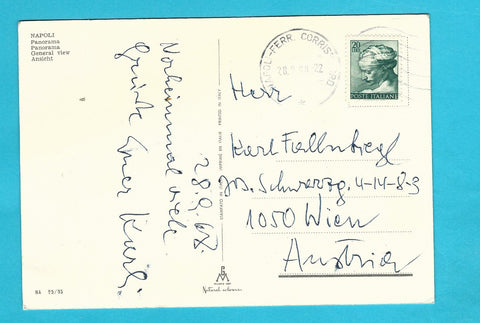 NAPOLI
Panorama
Panorama
General view
Ansicht
Nocheinmal viele
Grüsse Euer Karli
28.9.68.
STAMPATO IN ITALIA - IMPRIMÉ EN ITALIE - PRINTED IN ITALY
NAPOLI-FERR. CORRISP.
28.9.68.22
20
POSTE ITALIANE
Herr
Karl Fellnbiegl
Jos. Schwarzg. 4-14-8-9
1050 Wien
Austria
NA 73/85